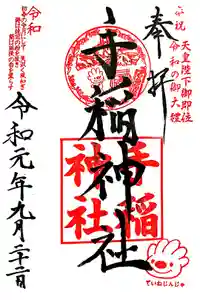 奉祝
天皇陛下御即位
令和の御大禮
奉拝
手稲神社
手稲
神社
ていねじんじゃ
令和
令和元年九月二十二日